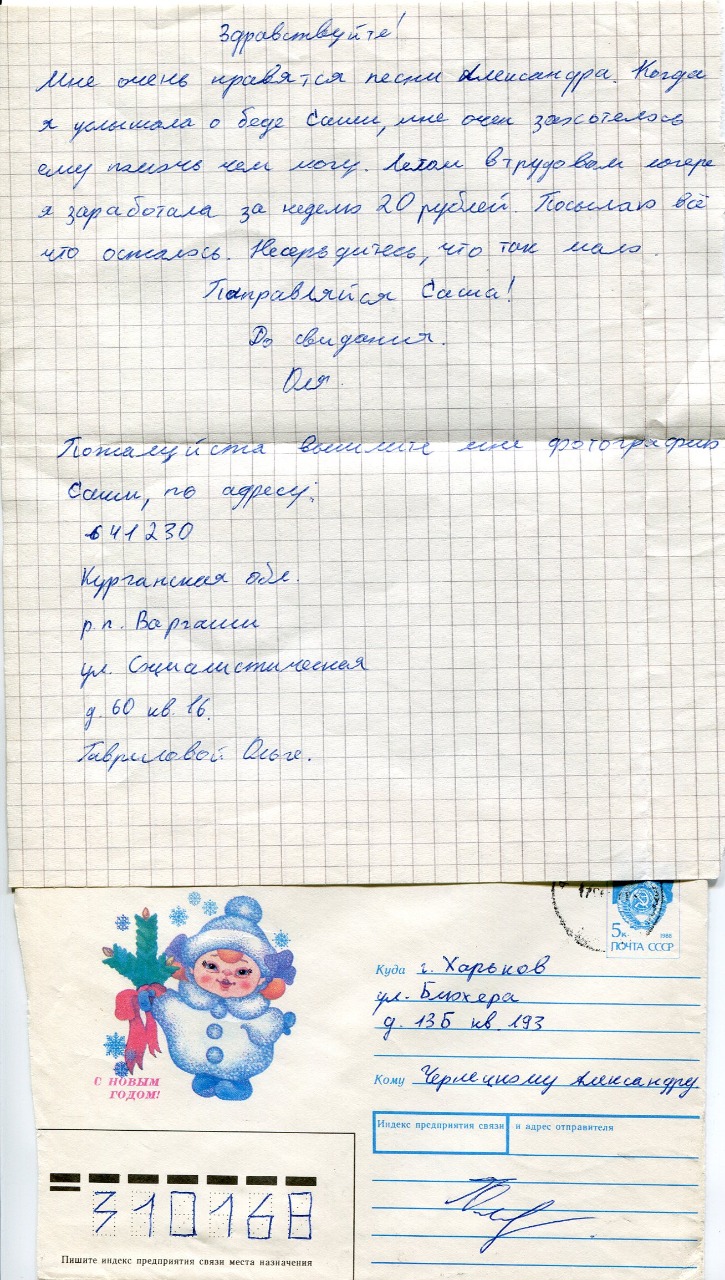 Здравствуйте!
Мне очень нравятся песни Александра. Когда
я услышала о беде Саши, мне очен захотелось
ему помочь чем могу. Летом в трудовом лагере
я заработала за неделю 20 рублей. Посылаю всё
что осталось. Несерьдитесь, что так мало.
Паправляйся Саша!
До свидания.
Оля.
Пожалуйста вышлите мне фотографию
Саши, по адресу:
641230
Курганская обл.
р.п. Варгаши
ул. Социалистическая
д. 60 кв. 16.
Гавриловой Ольге.
5к.
1988
ПОЧТА СССР
С НОВЫМ
ГОДОМ!
Куда г. Харьков
ул. Блюхера
д. 13Б кв. 193
Кому Черлецкому Александру.
Индекс предприятия связи и адрес отправителя
310168
Пишите индекс предприятия связи места назначения